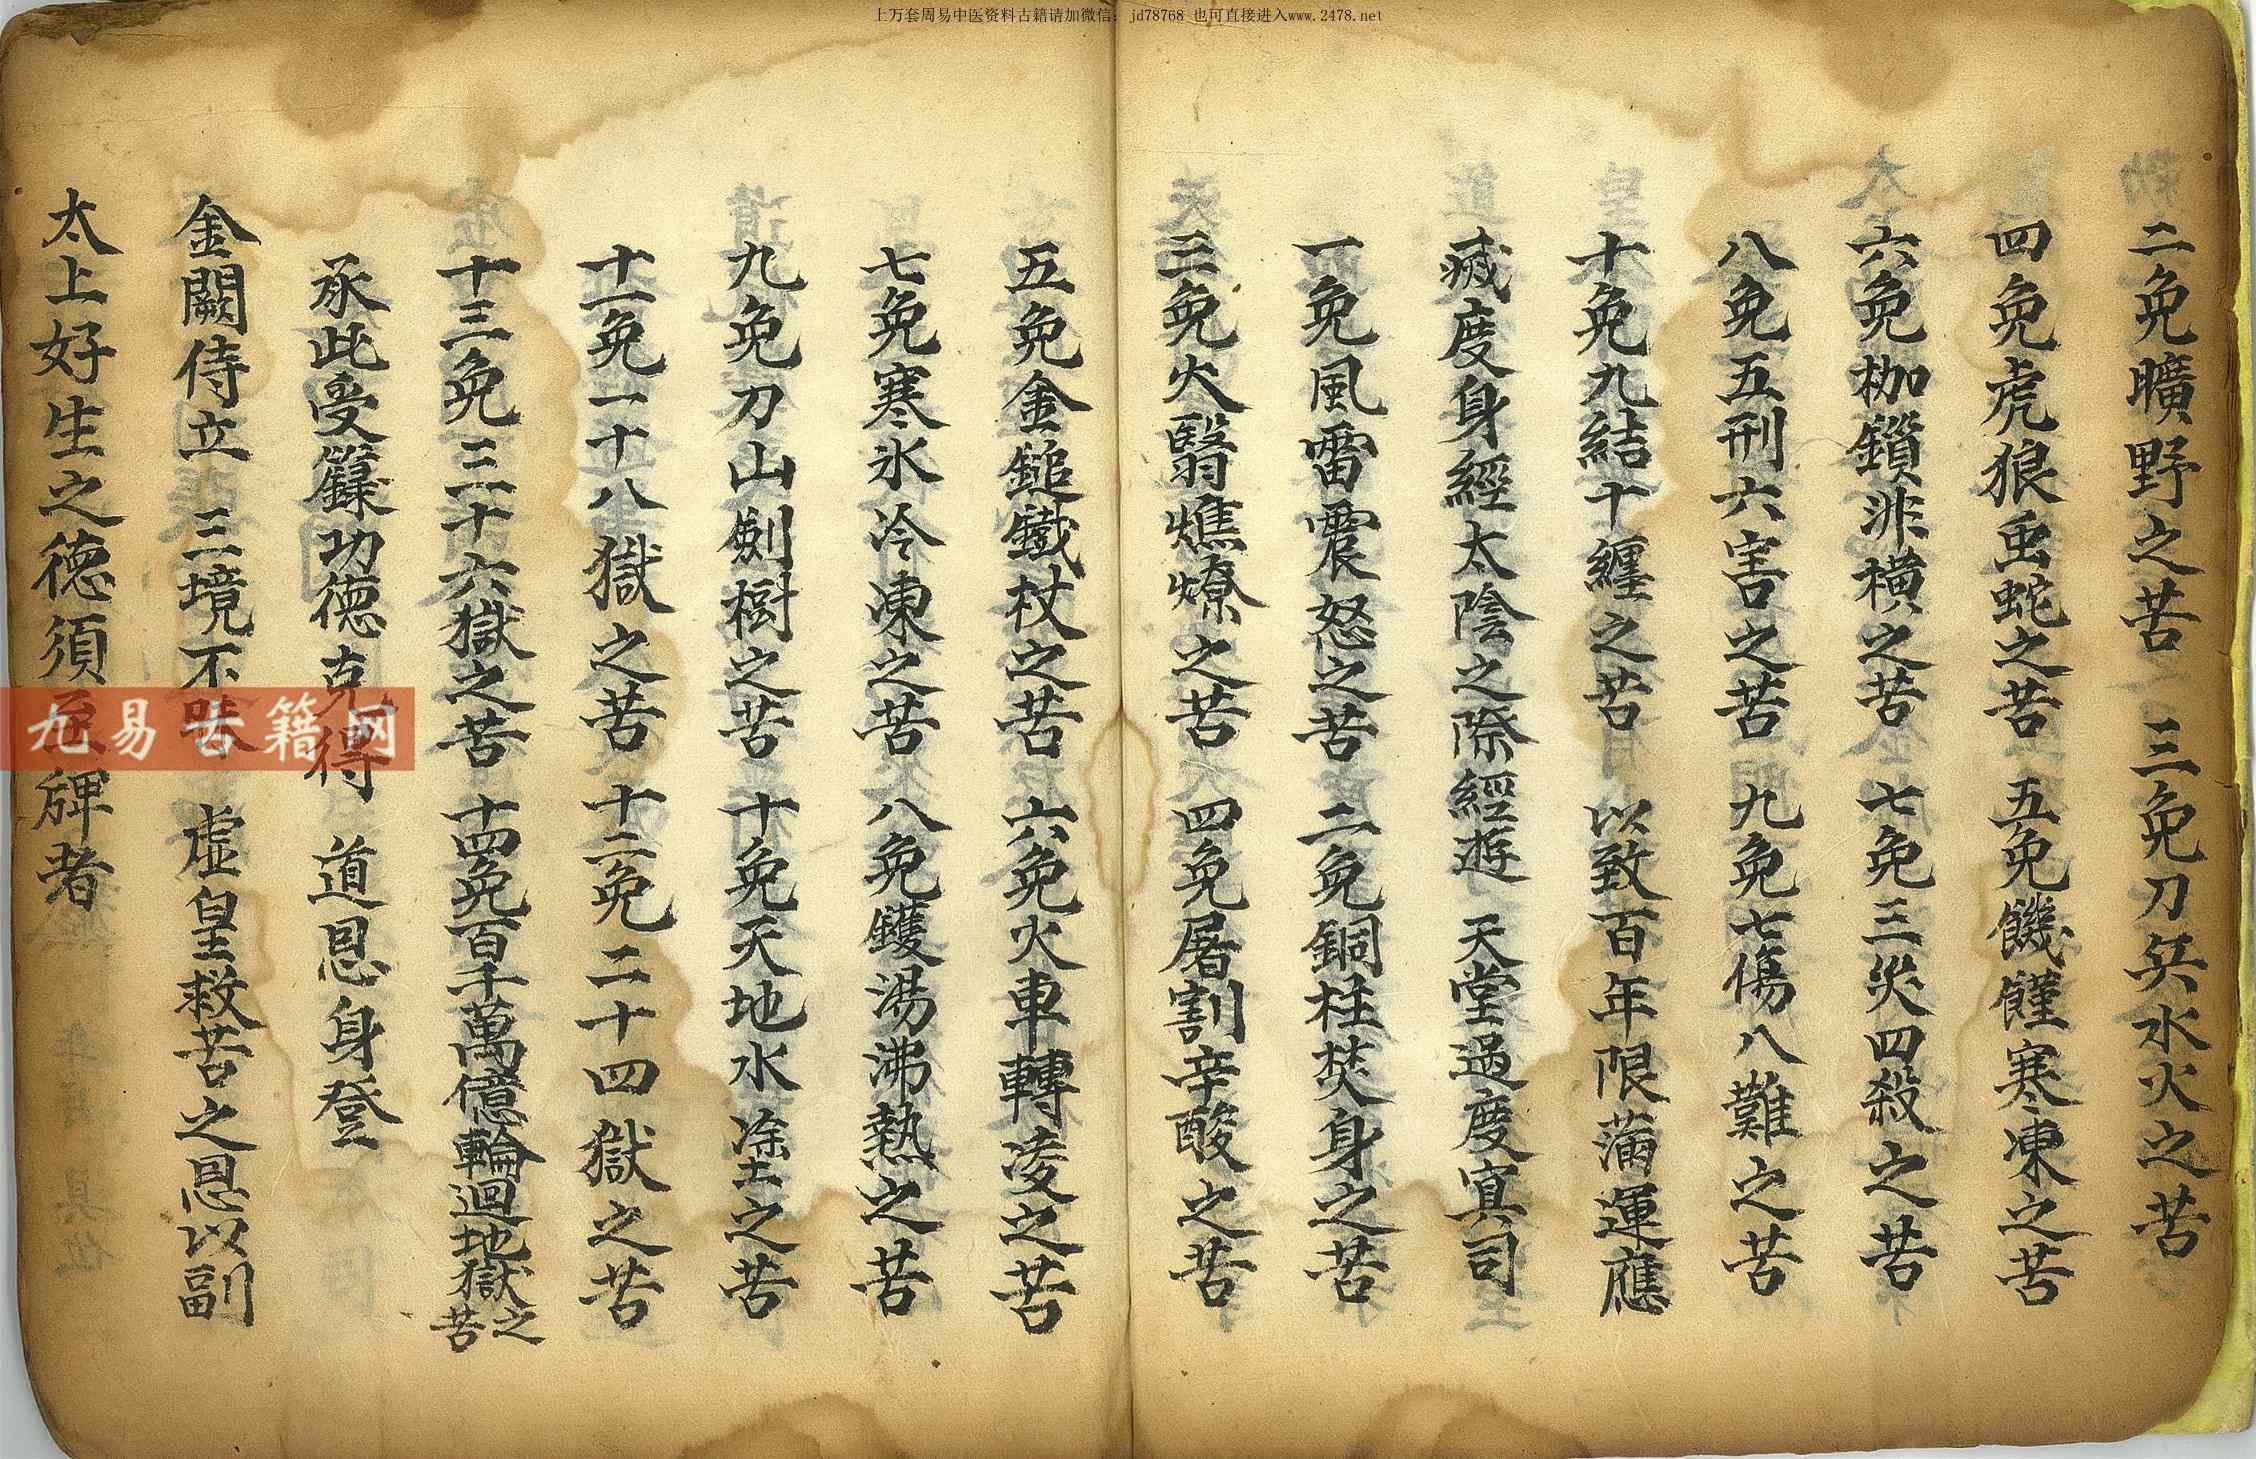 上万套周易中医资料古籍请加微信：jd78768 也可直接进入www.2478.net
二免曠野之苦 三免刀兵水火之苦
四免虎狼虫蛇之苦 五免饑饉寒凍之苦
六免枷鎖非橫之苦 七免三災四殺之苦
八免五刑六害之苦 九免七傷八難之苦
十免九結十纏之苦 以致百年限滿運應
滅度身經太陰之際經遊 天堂過度冥司
一免風雷震怒之苦 二免銅柱焚身之苦
三免火翳燋燎之苦 四免屠割辛酸之苦
五免金鎚鐵杖之苦 六免火車轉凌之苦
七免寒氷冷凍之苦 八免鑊湯沸熱之苦
九免刀山劍樹之苦 十免天地水塗之苦
十一免一十八獄之苦 十二免二十四獄之苦
十三免三十六獄之苦 十四免百千萬億輪迴地獄之苦
承此受籙功德克得 道恩身登
金闕侍立 三境不 虛皇救苦之恩以副
太上好生之德須至牌者
九易古籍网